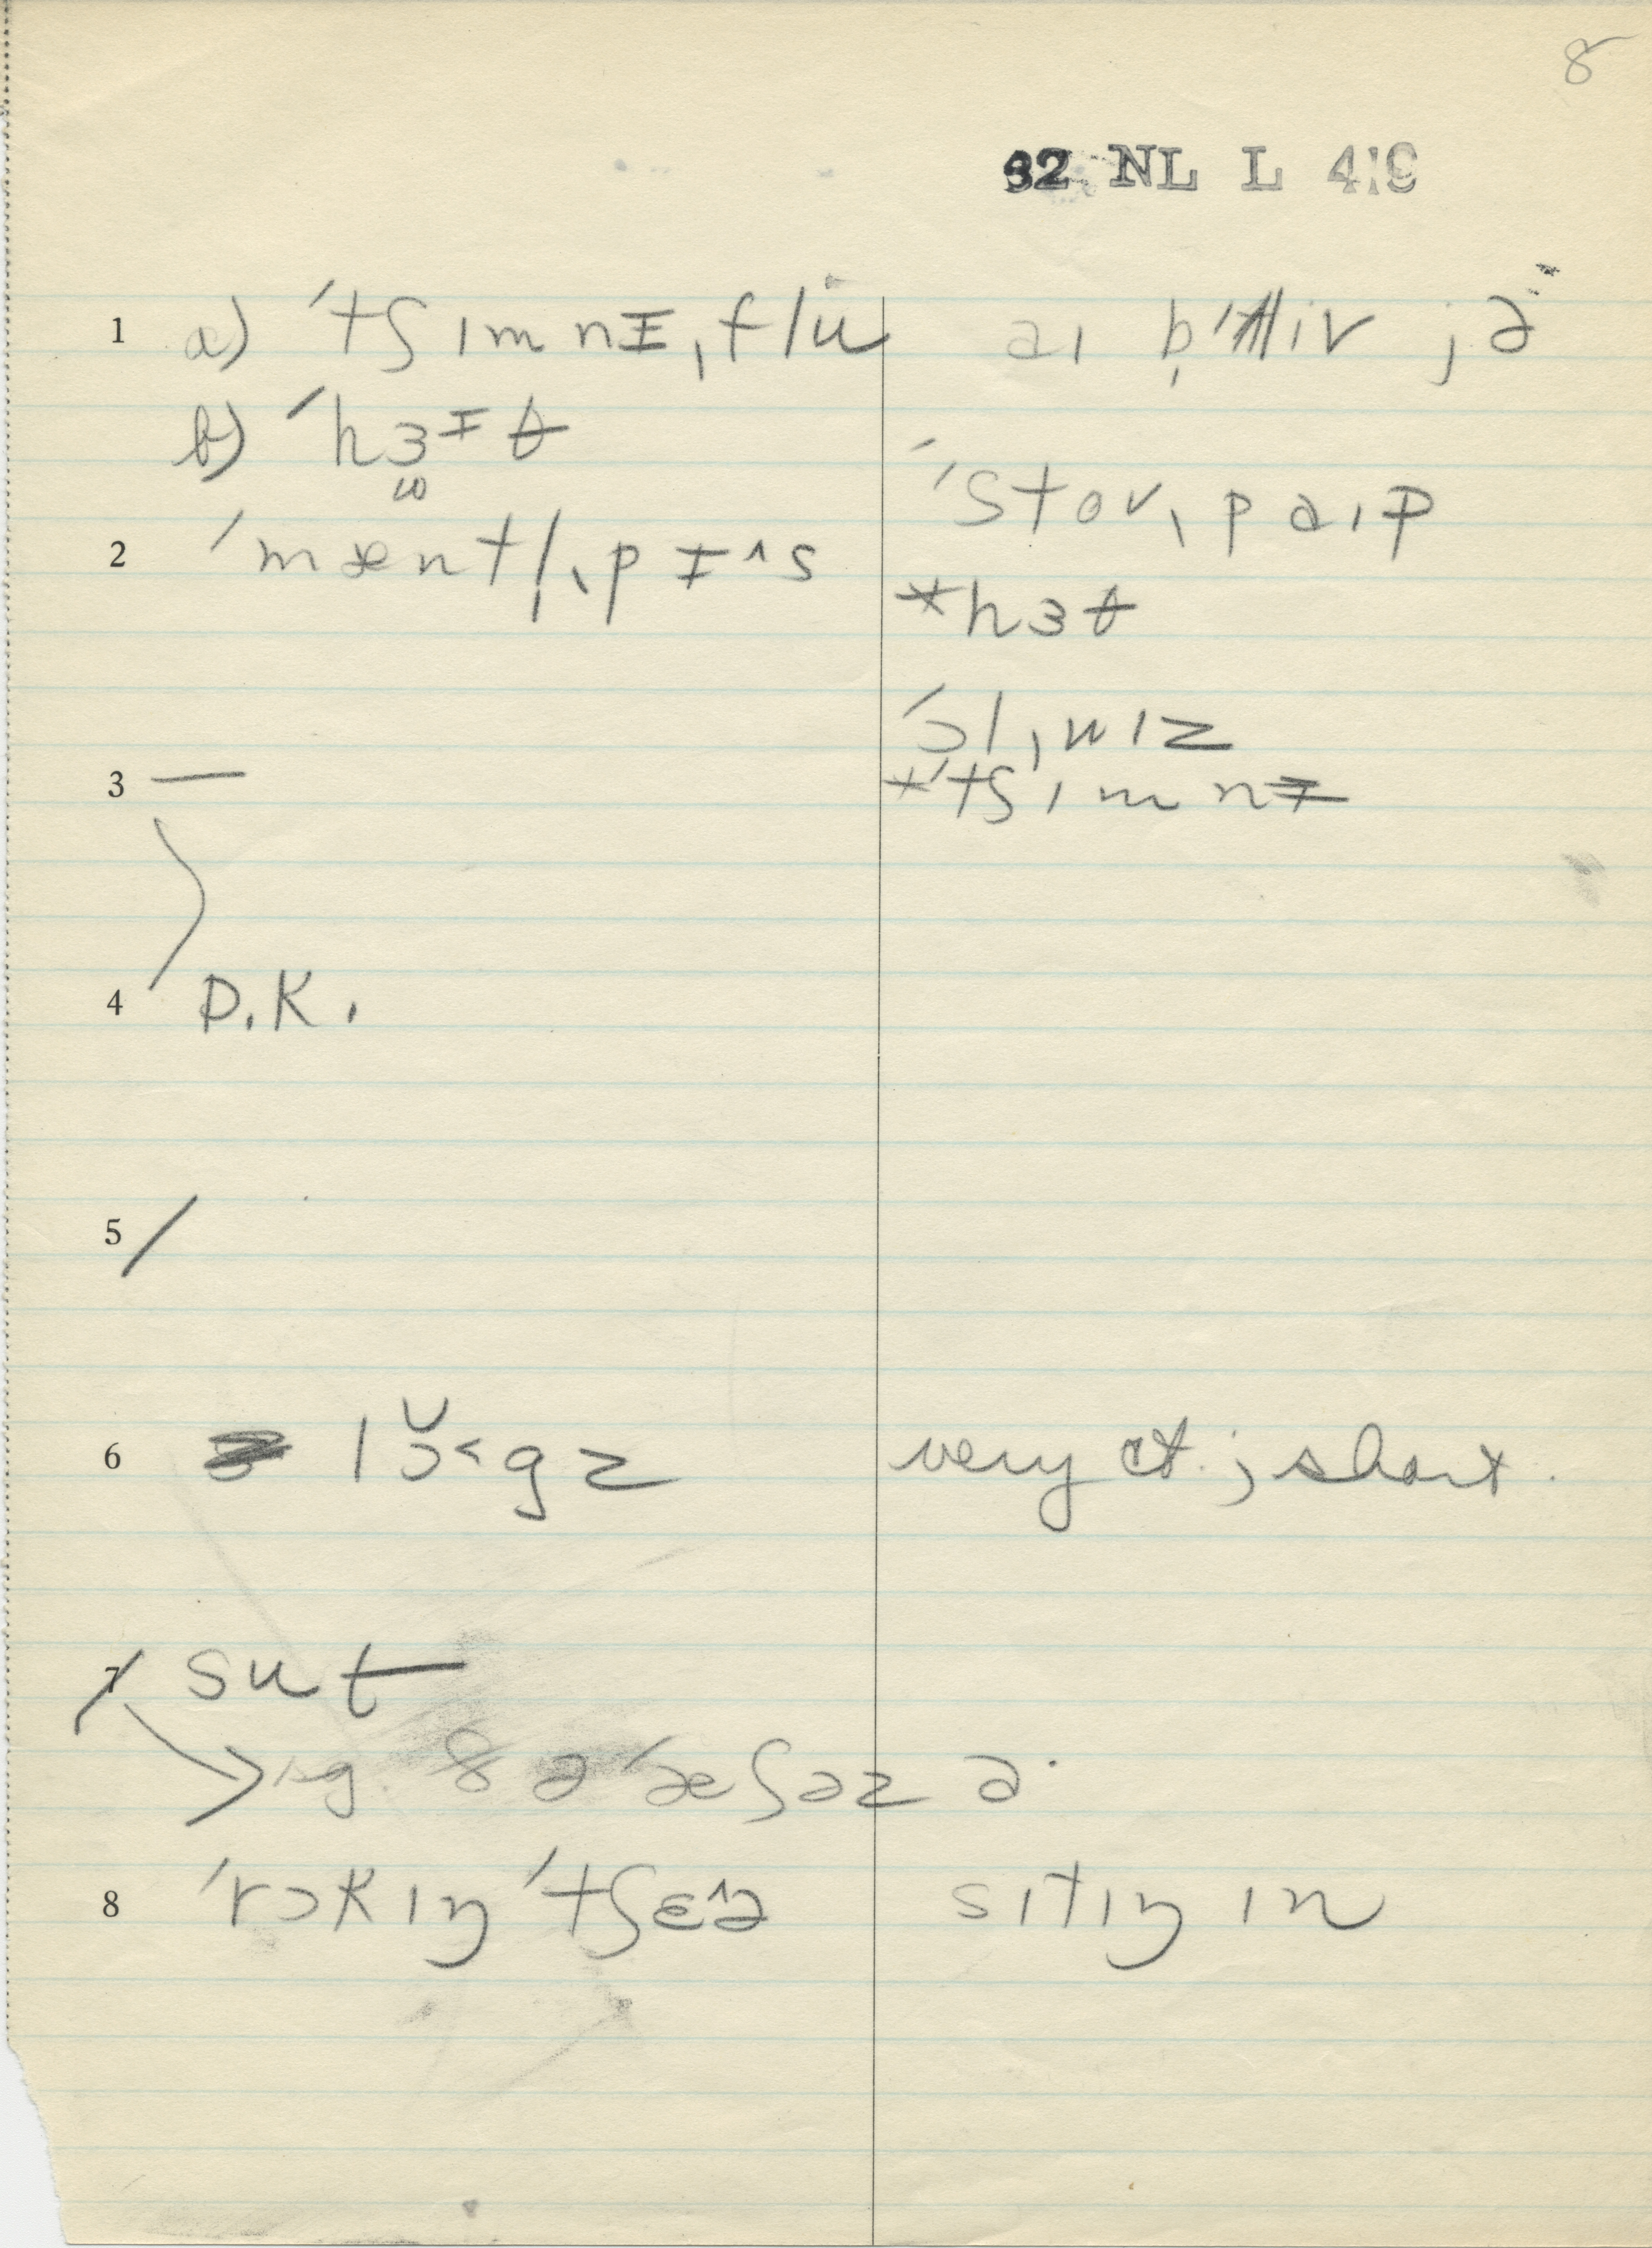 8
92 NL L 419
1 a) ˈtʃɪmnᵻˌflü aɪ bl̩ˈliv jə
b) ˈhɜᵻθ
ˈstovˌpaɪp
2 ˈmæntl̩ˌpᵻ^s
*hɜθ
ˈɔlˌwɪz
3 — *ˈtʃɪmnᵻ
4 D.K.
5 /
6 lɔ̆˂gz very cl.; short.
7 sut
sg. ðə ˈæʃəz ə·
8 ˈrɔkɪŋ ˈtʃɛ^ə sɪtɪŋ ɪn